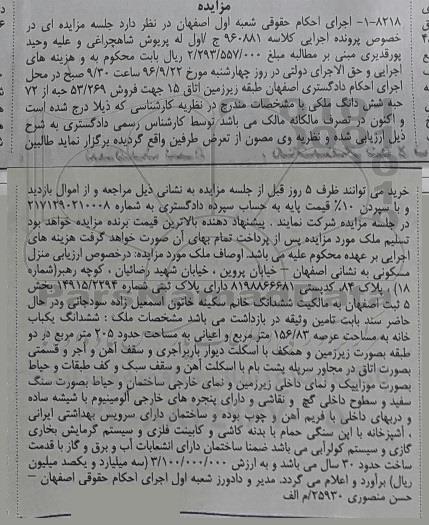 مزایده
۱-۸۲۱۸- اجرای احکام حقوقی شعبه اول اصفهان در نظر دارد جلسه مزایده ای در
خصوص پرونده اجرایی کلاسه ۹۶۰۸۸۱ ج /اول له پریوش شاهچراغی و علیه وحید
پورقدیری مبنی بر مطالبه مبلغ ۲/۲۹۳/۵۵۷/۰۰۰ ریال بابت محکوم به و هزینه های
اجرایی و حق الاجرای دولتی در روز چهارشنبه مورخ ۹۶/۹/۲۲ ساعت ۹/۳۰ صبح در محل
اجرای احکام دادگستری اصفهان طبقه زیرزمین اتاق ۱۵ جهت فروش ۵۳/۲۶۹ حبه از ۷۲
حبه شش دانگ ملکی با مشخصات مندرج در نظریه کارشناسی که ذیلا درج شده است
و اکنون در تصرف مالکانه مالک می باشد توسط کارشناس رسمی دادگستری به شرح
ذیل ارزیابی شده و نظریه وی مصون از تعرض طرفین واقع گردیده برگزار نماید طالبین
خرید می توانند ظرف ۵ روز قبل از جلسه مزایده به نشانی ذیل مراجعه و از اموال بازدید
و با سپردن ۱۰٪ قیمت پایه به حساب سپرده دادگستری به شماره ۲۱۷۱۲۹۰۲۱۰۰۰۸
در جلسه مزایده شرکت نمایند . پیشنهاد دهنده بالاترین قیمت برنده مزایده خواهد بود
تسلیم ملک مورد مزایده پس از پرداخت تمام بهای آن صورت خواهد گرفت هزینه های
اجرایی بر عهده محکوم علیه می باشد. اوصاف ملک مورد مزایده: درخصوص ارزیابی منزل
مسکونی به نشانی اصفهان – خیابان پروین ، خیابان شهید رضائیان ، کوچه رهبر(شماره
۱۸) ، پلاک ۸۴، کدپستی ۸۱۹۸۸۶۶۶۸۱ دارای پلاک ثبتی شماره ۱۴۹۱۵/۲۲۹۴ بخش
۵ ثبت اصفهان به مالکیت ششدانگ خانم سکینه خاتون اسمعیل زاده سودجانی ودر حال
حاضر سند بابت تامین وثیقه در بازداشت می باشد مشخصات ملک : ششدانگ یکباب
خانه به مساحت عرصه ۱۵۶/۸۳ متر مربع و اعیانی به مساحت حدود ۲۰۵ متر مربع در دو
طبقه بصورت زیرزمین و همکف با اسکلت دیوار باربرآجری و سقف آهن و آجر و قسمتی
بصورت اتاق در مجاور سرپله پشت بام با اسکلت آهن و سقف سبک و کف طبقات و حیاط
بصورت موزاییک و نمای داخلی زیرزمین و نمای خارجی ساختمان و حیاط بصورت سنگ
سفید و سطوح داخلی گچ و نقاشی و دارای پنجره های خارجی آلومینیوم با شیشه ساده
و دربهای داخلی با فریم آهن و چوب بوده و ساختمان دارای سرویس بهداشتی ایرانی
، آشپزخانه با اپن سنگی حمام با بدنه کاشی و کابینت فلزی و سیستم گرمایش بخاری
گازی و سیستم کولرآبی می باشد ضمنا ساختمان دارای انشعابات آب و برق و گاز با قدمت
ساخت حدود ۳۰ سال می باشد و به ارزش ۳/۱۰۰/۰۰۰/۰۰۰ (سه میلیارد و یکصد میلیون
ریال) برآورد و اعلام می گردد. مدیر و دادورز شعبه اول اجرای احکام حقوقی اصفهان –
حسن منصوری ۲۵۹۳۰/م الف